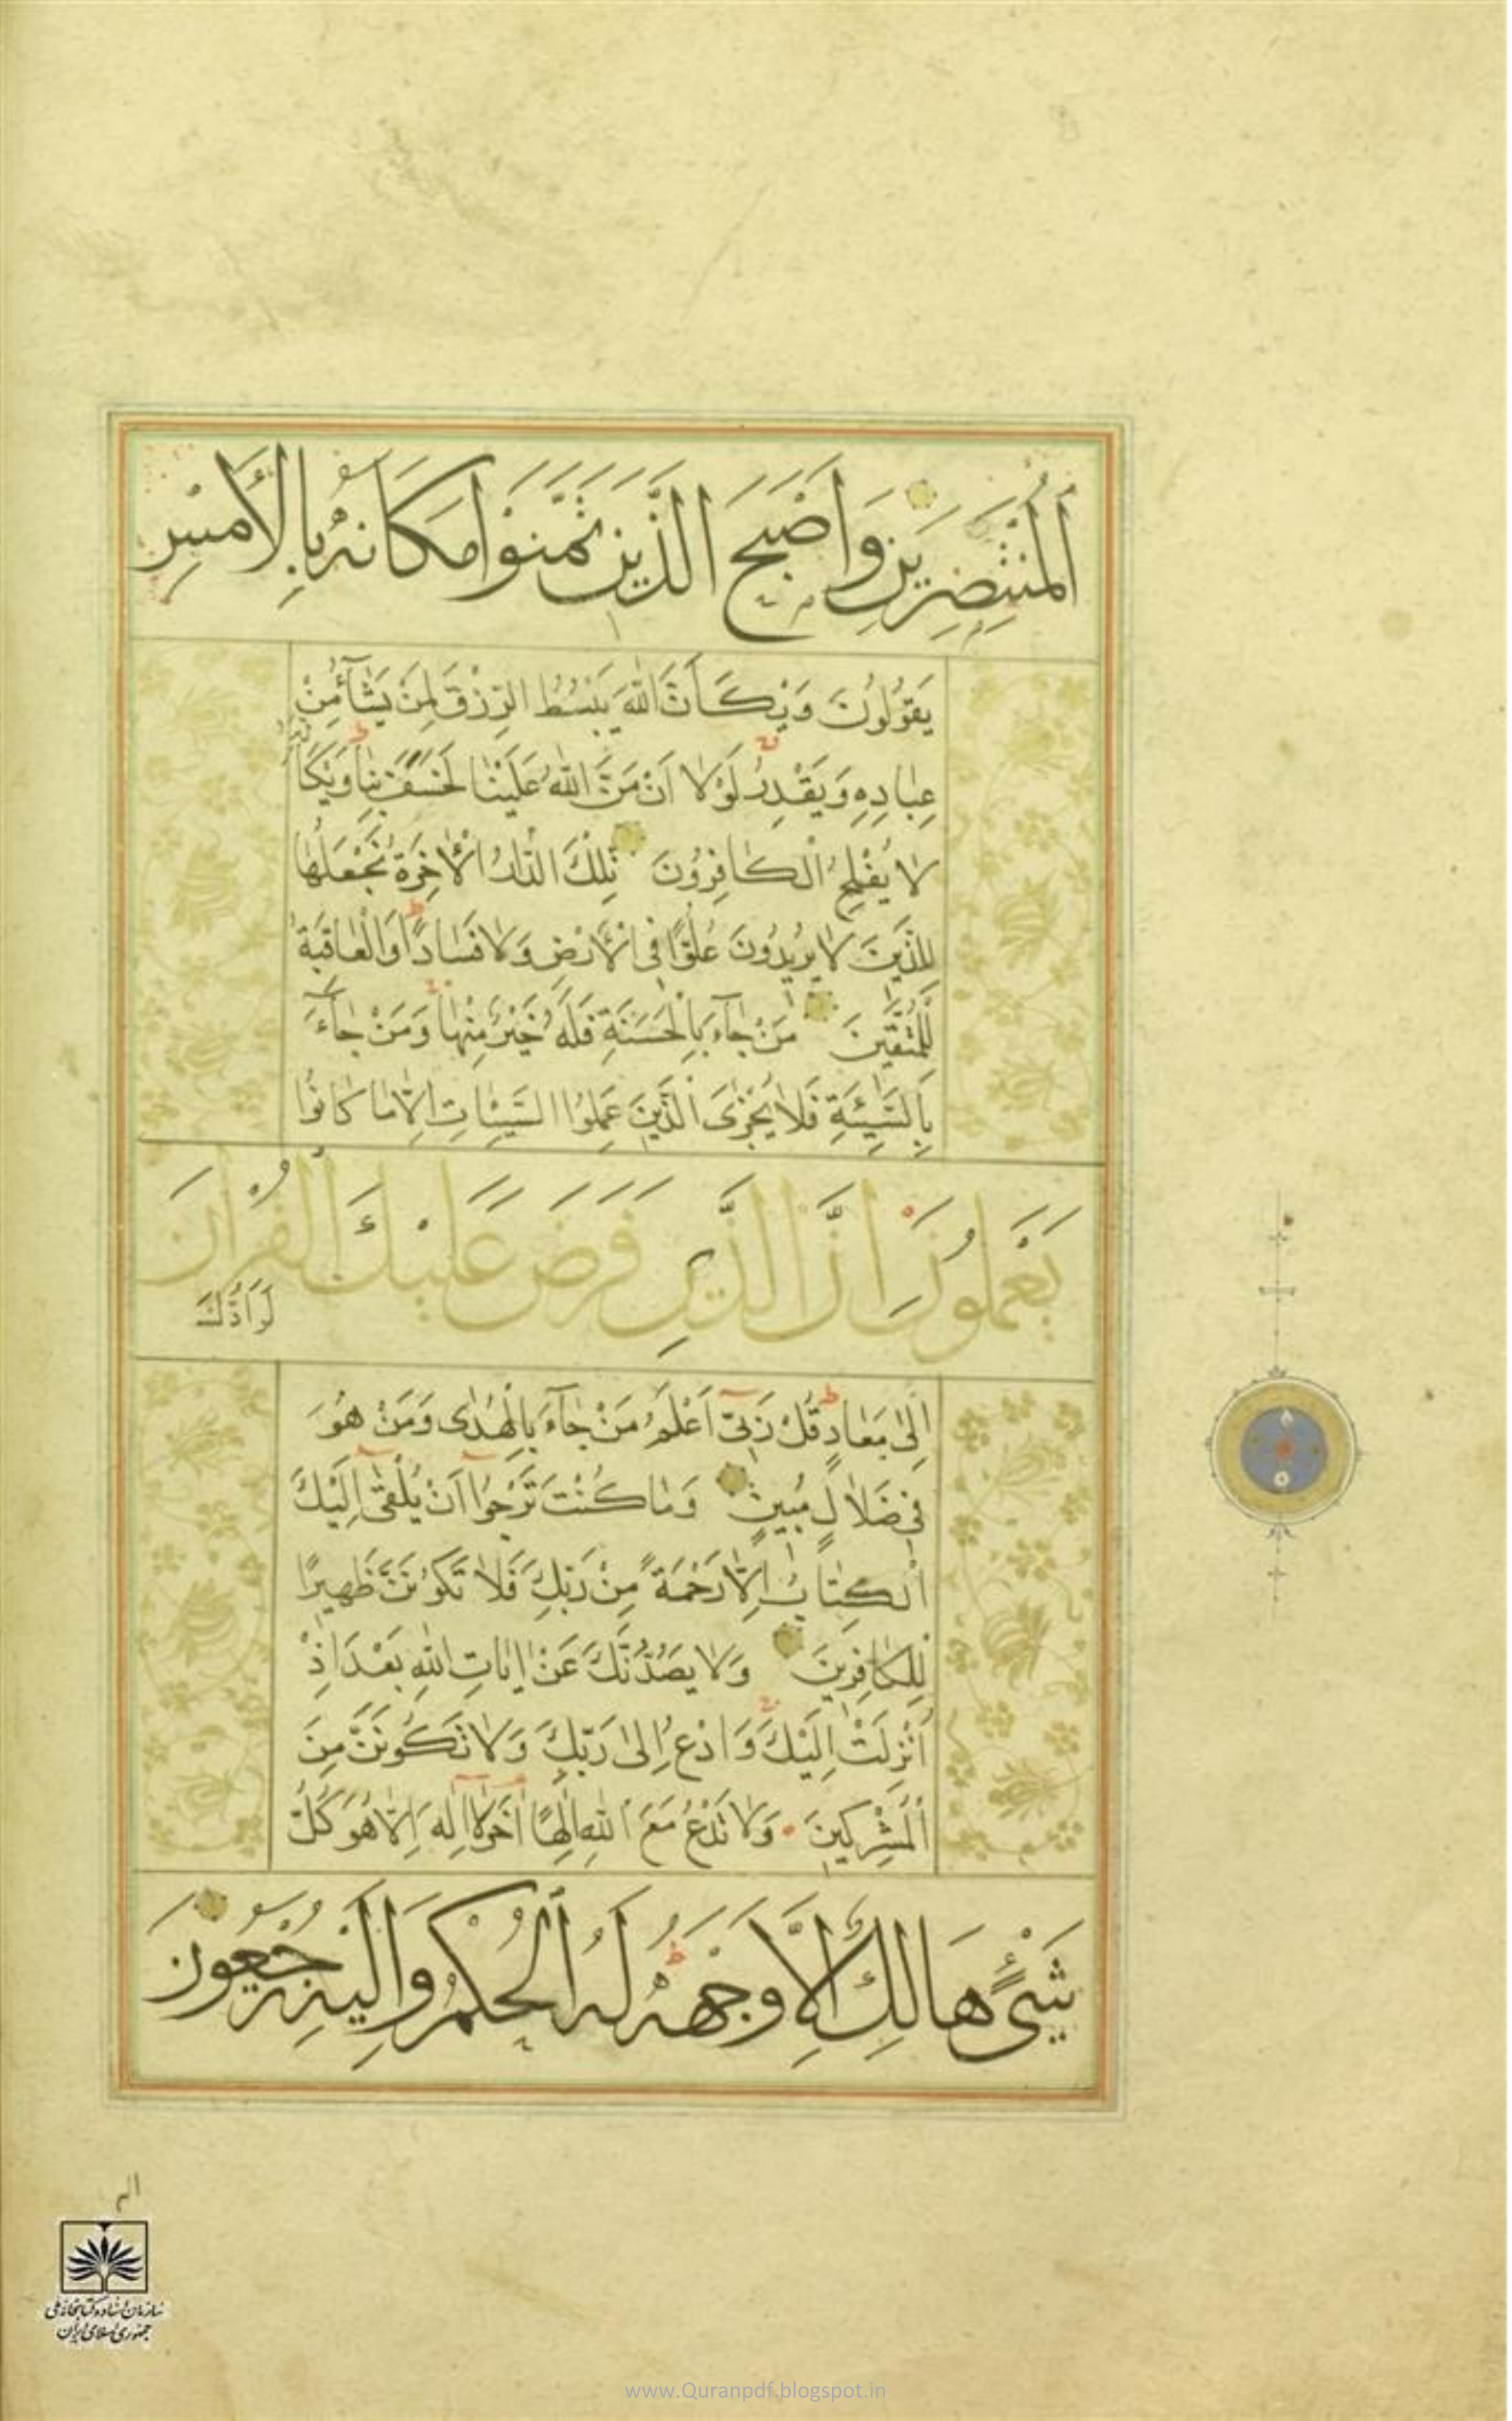 اَلْمُنْتَصِرِينَ وَاَصْبَحَ الَّذِينَ تَمَنَّوْا مَكَانَهُ بِالْاَمْسِ
يَقُولُونَ وَيْكَاَنَّ اللّٰهَ يَبْسُطُ الرِّزْقَ لِمَنْ يَشَآءُ مِنْ
عِبَادِهِ وَيَقْدِرُ لَوْلَا اَنْ مَنَّ اللّٰهُ عَلَيْنَا لَخَسَفَ بِنَا وَيْكَاَنَّهُ
لَا يُفْلِحُ الْكَافِرُونَ تِلْكَ الدَّارُ الْاٰخِرَةُ نَجْعَلُهَا
لِلَّذِينَ لَا يُرِيدُونَ عُلُوًّا فِى الْاَرْضِ وَلَا فَسَادًا وَالْعَاقِبَةُ
لِلْمُتَّقِينَ مَنْ جَآءَ بِالْحَسَنَةِ فَلَهُ خَيْرٌ مِنْهَا وَمَنْ جَآءَ
بِالسَّيِّئَةِ فَلَا يُجْزَى الَّذِينَ عَمِلُوا السَّيِّئَاتِ اِلَّا مَا كَانُوا
يَعْمَلُونَ اِنَّ الَّذِى فَرَضَ عَلَيْكَ الْقُرْاٰنَ
لَرَادُّكَ
اِلٰى مَعَادٍ قُلْ رَبِّىٓ اَعْلَمُ مَنْ جَآءَ بِالْهُدٰى وَمَنْ هُوَ
فِى ضَلَالٍ مُبِينٍ وَمَا كُنْتَ تَرْجُوٓا اَنْ يُلْقٰىٓ اِلَيْكَ
الْكِتَابُ اِلَّا رَحْمَةً مِنْ رَبِّكَ فَلَا تَكُونَنَّ ظَهِيرًا
لِلْكَافِرِينَ وَلَا يَصُدُّنَّكَ عَنْ اٰيَاتِ اللّٰهِ بَعْدَ اِذْ
اُنْزِلَتْ اِلَيْكَ وَادْعُ اِلٰى رَبِّكَ وَلَا تَكُونَنَّ مِنَ
الْمُشْرِكِينَ وَلَا تَدْعُ مَعَ اللّٰهِ اِلٰهًا اٰخَرَ لَآ اِلٰهَ اِلَّا هُوَ كُلُّ
شَيْءٍ هَالِكٌ اِلَّا وَجْهَهُ لَهُ الْحُكْمُ وَاِلَيْهِ تُرْجَعُونَ
الم
سازمان اسناد و کتابخانه ملی
جمهوری اسلامی ایران
www.Quranpdf.blogspot.in